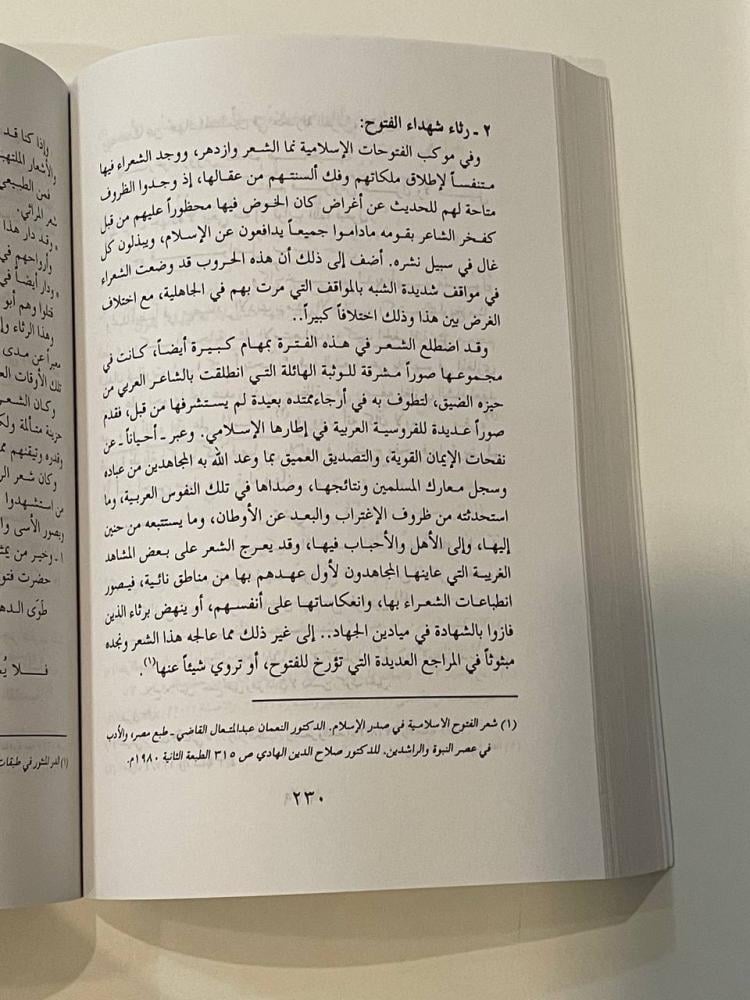 ٢ ـ رثاء شهداء الفتوح:
وفي موكب الفتوحات الإسلامية نما الشعر وازدهر، ووجد الشعراء فيها
متنفساً لإطلاق ملكاتهم وفك ألسنتهم من عقالها، إذ وجدوا الظروف
متاحة لهم للحديث عن أغراض كان الخوض فيها محظوراً عليهم من قبل
كفخر الشاعر بقومه ماداموا جميعاً يدافعون عن الإسلام، ويبذلون كل
غال في سبيل نشره. أضف إلى ذلك أن هذه الحروب قد وضعت الشعراء
في مواقف شديدة الشبه بالمواقف التي مرت بهم في الجاهلية، مع اختلاف
الغرض بين هذا وذلك اختلافاً كبيراً..
وقد اضطلع الشعر في هذه الفترة بمهام كبيرة أيضاً، كانت في
مجموعها صوراً مشرقة للوثبة الهائلة التي انطلقت بالشاعر العربي من
حيزه الضيق، لتطوف به في أرجاءممتده بعيدة لم يستشرفها من قبل، فقدم
صوراً عديدة للفروسية العربية في إطارها الإسلامي. وعبر ـ أحياناً ـ عن
نفحات الإيمان القوية، والتصديق العميق بما وعد الله به المجاهدين من عباده
وسجل معارك المسلمين ونتائجها، وصداها في تلك النفوس العربية، وما
استحدثته من ظروف الإغتراب والبعد عن الأوطان، وما يستتبعه من حنين
إليها، وإلى الأهل والأحباب فيها، وقد يعرج الشعر على بعض المشاهد
الغريبة التي عاينها المجاهدون لأول عهدهم بها من مناطق نائية، فيصور
انطباعات الشعراء بها، وانعكاساتها على أنفسهم، أو ينهض برثاء الذين
فازوا بالشهادة في ميادين الجهاد.. إلى غير ذلك مما عالجه هذا الشعر ونجده
مبثوثاً في المراجع العديدة التي تؤرخ للفتوح، أو تروي شيئاً عنها(١).
(١) شعر الفتوح الاسلامية في صدر الإسلام. الدكتور النعمان عبدالمتعال القاضي ـ طبع مصر، والأدب
في عصر النبوة والراشدين. للدكتور صلاح الدين الهادي ص ٣١٥ الطبعة الثانية ١٩٨٠م.
٢٣٠
وإذا كنا قد
والأشعار الملتهبة
فمن الطبيعي
شعر المراثي.
وقد دار هذا
وأرواحهم في
ودار أيضاً في
قتلوا وهم أبو
وهذا الرثاء وإ
معبراً عن مدى
تلك الأوقات الع
وكان الشعر
حزينة متألة ولك
وقدره وتيقنهم مم
وكان شعر الر
من استشهدوا
ويصور الأسى وا
١ ـ وخير من يمث
حضرت فتو
طَوَى الده
فلا يُ
(١) الدر المنثور في طبقات